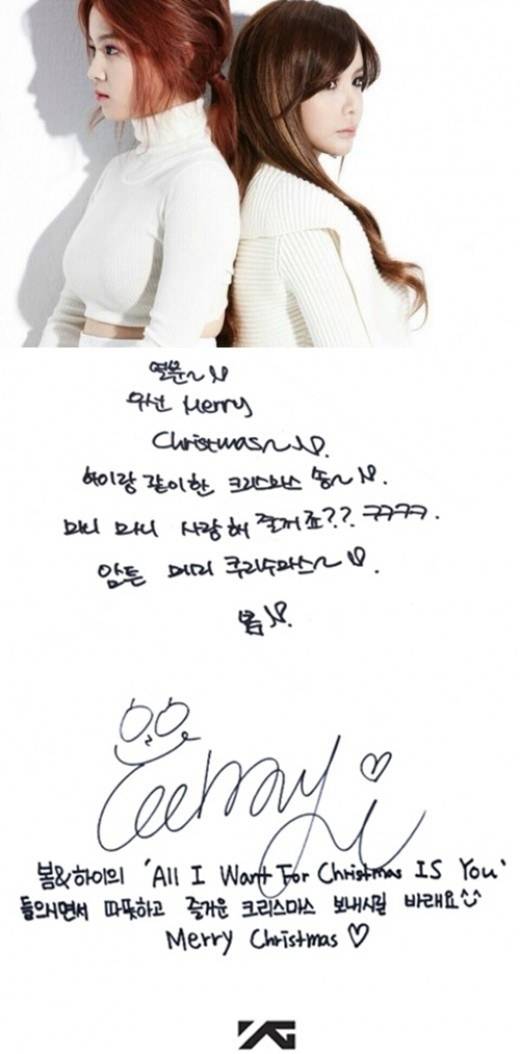 열분~♡
우선 Merry
Christmas~♡.
하이랑 같이한 크리스마스 송~♡.
마니 마니 사랑해 줄거죠?? ㅋㅋㅋㅋ.
암튼 메리 쿠리수마스~♡.
봄♡.
Lee Hi
봄&하이의 'All I Want For Christmas IS You'
들으시면서 따뜻하고 즐거운 크리스마스 보내시길 바래요^^
Merry Christmas ♡
YG